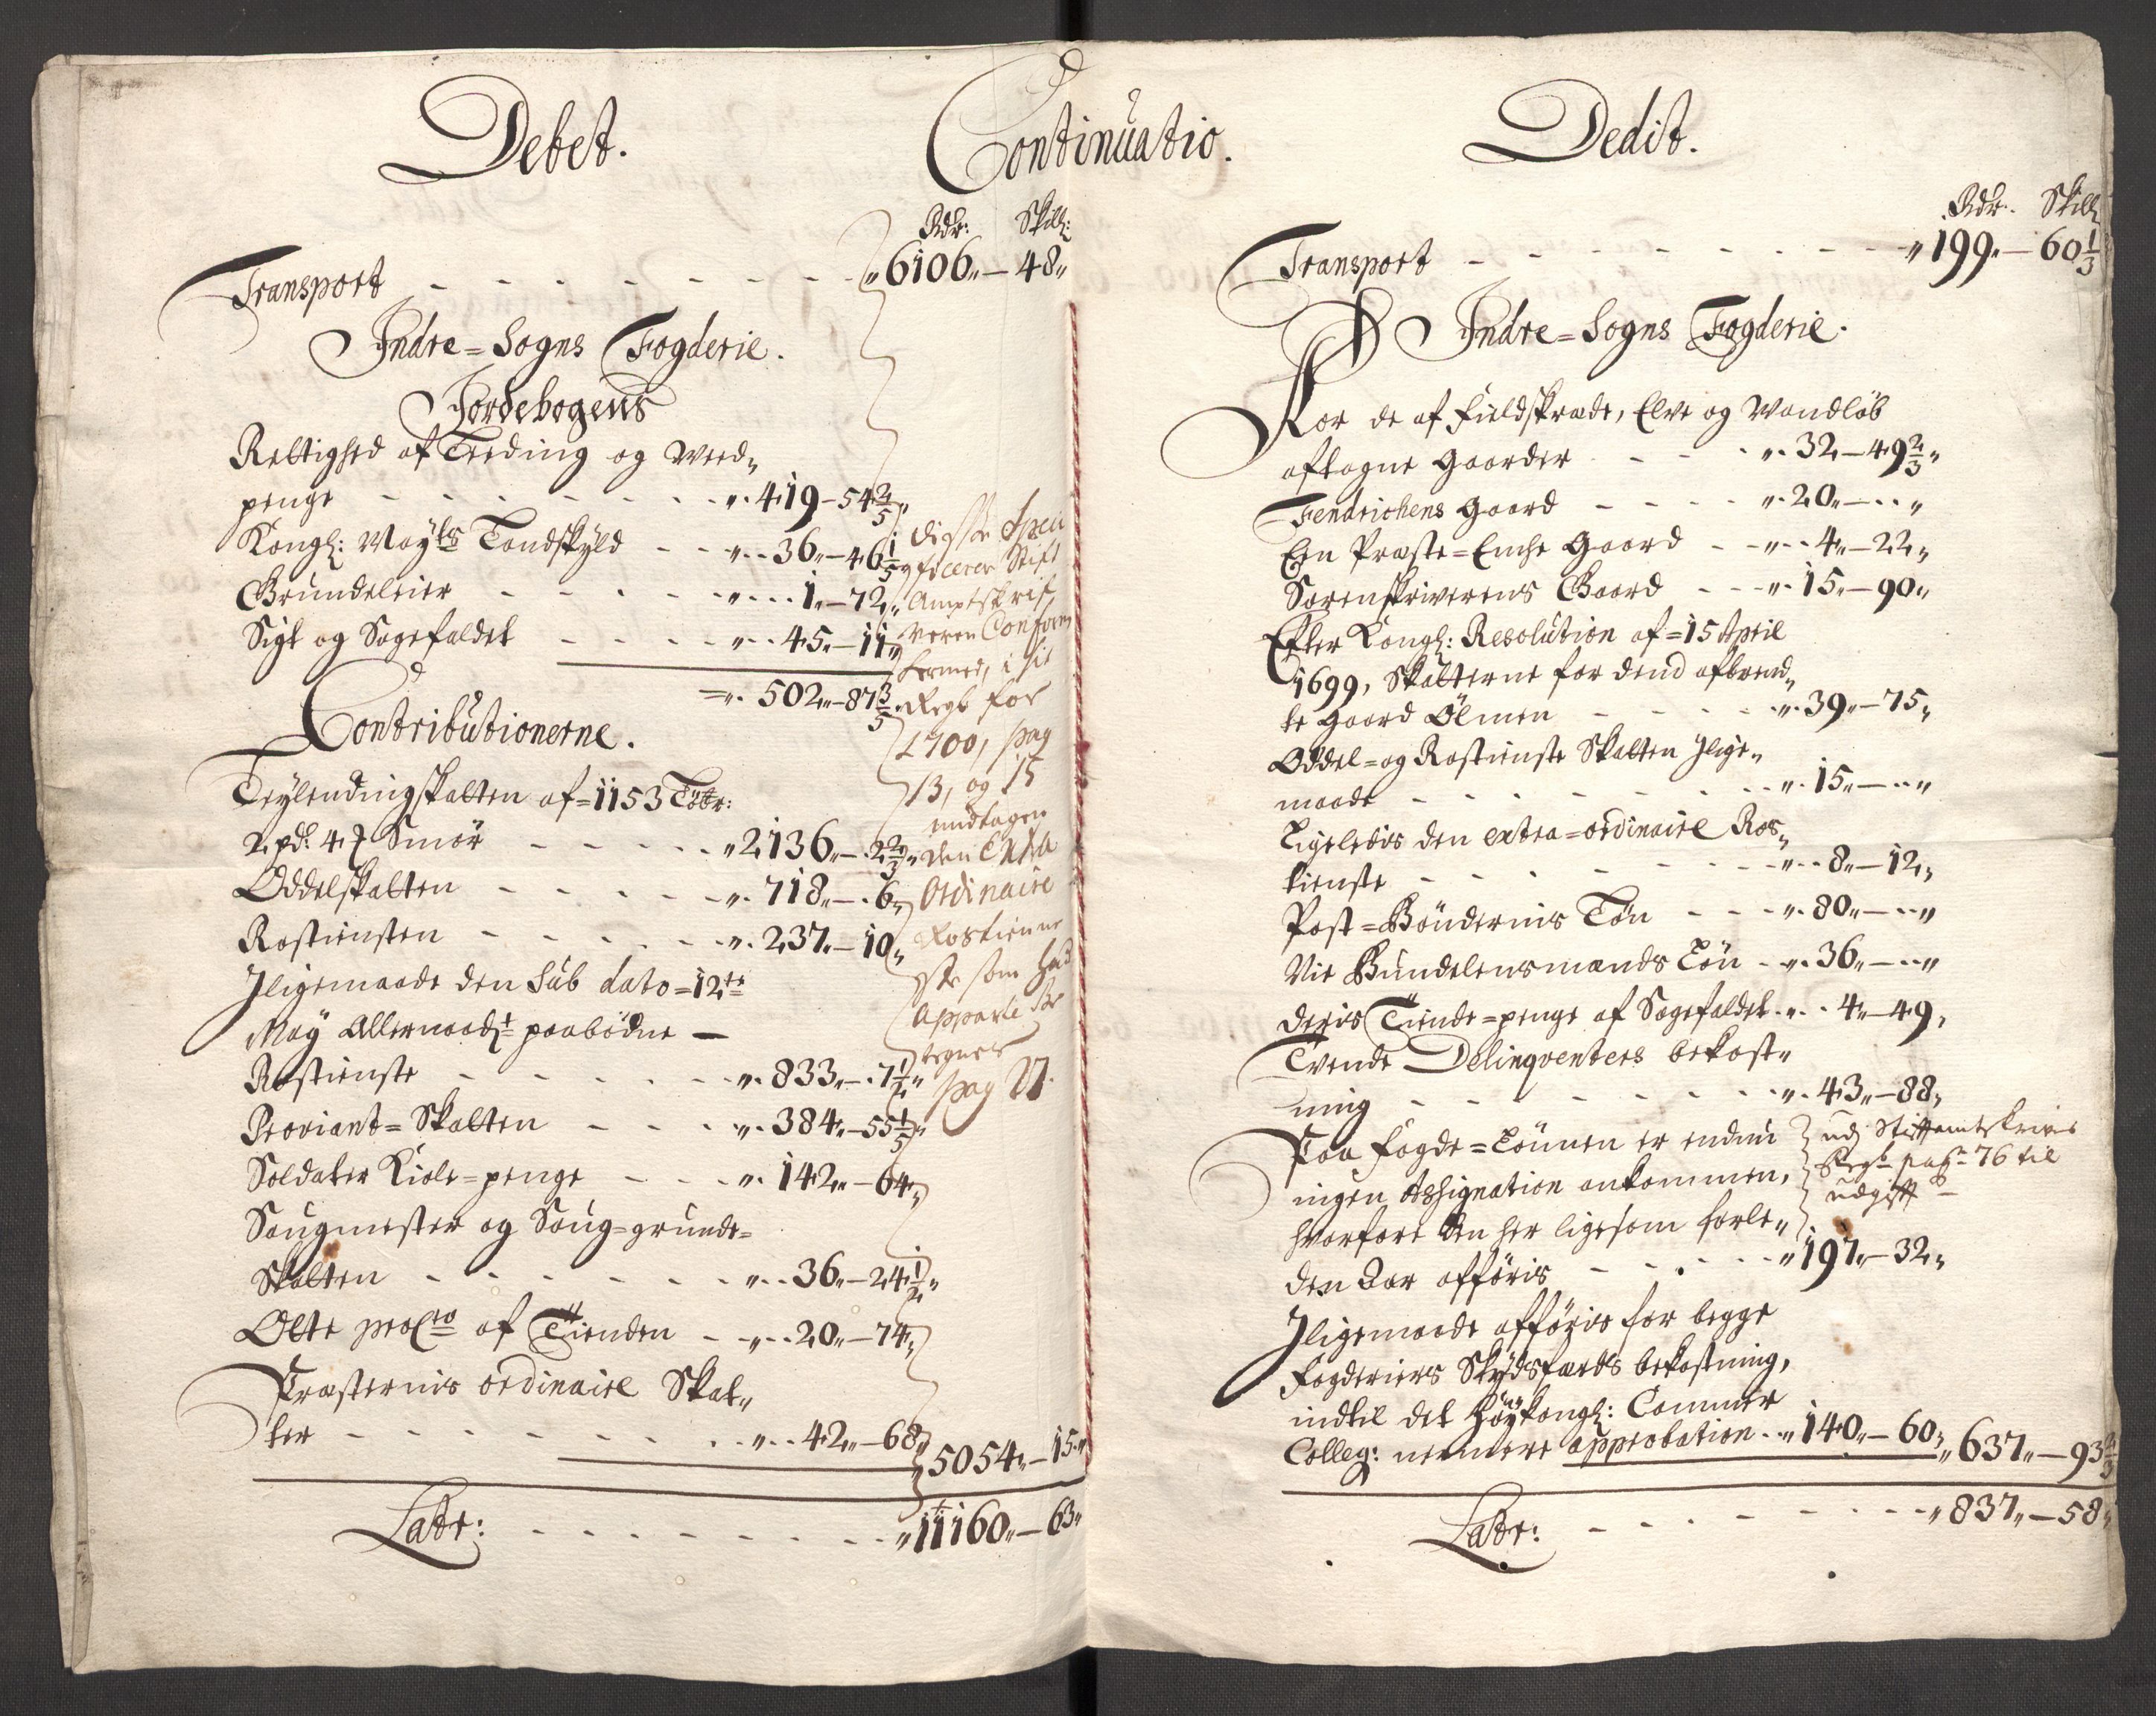 Debet.
Continuatio.
Rdr: Skill:
Transport - - - - - - - „6106„ - 48„
Indre=Sogns Fogderie.
Jordebogens
Rettighed af Leeding og Weed„
penge - - - - - - - „. 419 - 54 2/5„
Kongl: Mayts Landskyld - - „.. 36„ - 46 1/5„
Grundeleier - - - - - „... 1„ - 72„
Sigt og Sagefaldet - - - - „.. 45„ - 11„
=„. 502„ - 87 3/5„
Contributionerne.
Leylendingskatten af=1153 Löbr:
2 pd: 4 Smör - - - - - „2136„ - . 2 2/3„
Oddelskatten - - - - - „. 718„ - . 6„
Rostiensten - - - - - „. 237„ - 10„
Jligemaade den Sub dato=12te
May Allernaadt paabödne -
Rostienste - - - - - „. 833„ - . 7 1/2„
Proviant=Skatten - - - „. 384„ - 55 1/5„
Soldater Kiole=penge - - - „. 142„ - 64„
Saugmester og Saug=grunde=
Skatten - - - - - - „.. 36„ - 24 1/2„
Otte procto af Tienden - - „.. 20„ - 74„
Præsternis ordinaire Skat„
ter - - - - - - - „.. 42„ - 68„ „5054„ - 15„
Latr: - - - - - - - „11160„ - 63„
disse Speci
ficerer Stift
Amptskrif
veren Conform
hermed, i sit
Regb for
1700, pag
13, og 15
undtagen
den Extra
Ordinaire
Rostienne
ste som
Apparte
tegner
pag 27.
Dedit.
Rdr. Skill
Transport - - - - - - - „199„ - 60 1/3
Indre=Sogns Fogderie.
For de af Fieldskrade, Elve og Vandlöb
aftagne gaarder - - - „. 32 - 49 2/3„
Fendrichens gaard - - - - „. 20„ - .. „
Een Præste=Enche gaard - - „.. 4„ - 22„
Sorenskriverens Gaard - - - „. 15„ - 90„
Efter Kongl: Resolution af=15 April
1699, Skatterne for dend afbrend„
te gaard Ölmen - - - - „. 39„ - 75„
Oddel=og Rostienste Skatten Jlige„
maade - - - - - - - „. 15„ - .. „
Ligeledis den extra=ordinaire Ros„
tienste - - - - - - - „.. 8„ - 12„
Post=Böndernis Lön - - - „. 80„ - .. „
Nie Bundelensmands Lön - „. 36„ - .. „
deris Tiende=penge af Sagefaldet „.. 4„ - 49„
Tvende Delinqventers bekost„
ning - - - - - - - „. 43„ - 88„
Paa Fogde=Lönnen er endnu
ingen Assignation ankommen,
hvorfore den her ligesom forle„
den Aar afföris - - - - - „197„ - 32„
udj Stiftamtskrivs
Regb pag: 76 til
udgift
Jligemaade afföris for begge
Fogderiers Skydsfærds bekostning,
indtil det höykongl: Cammer
Colleg: nermere approbation. „140„ - 60„ „637„ - 93 2/3
Latr: - - - - - - - „837„ - 58„